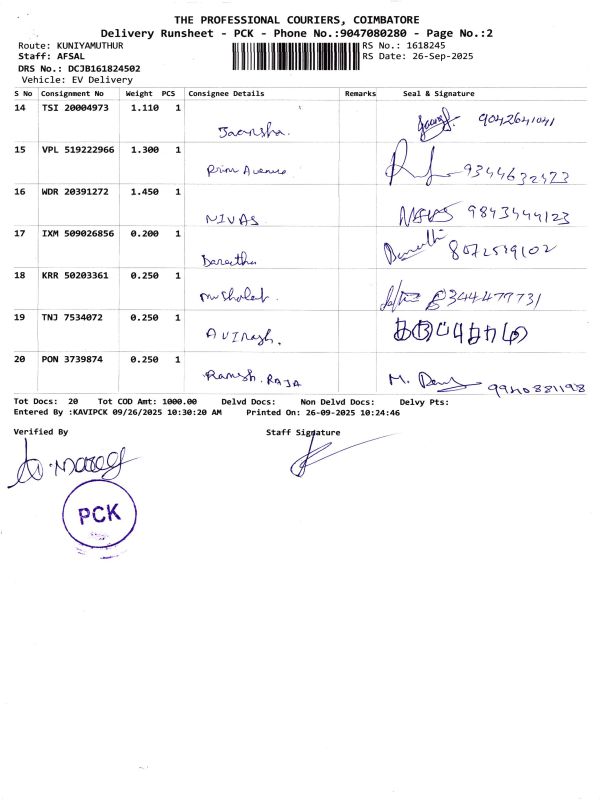 THE PROFESSIONAL COURIERS, COIMBATORE
Delivery Runsheet - PCK - Phone No.:9047080280 - Page No.:2
Route: KUNIYAMUTHUR RS No.: 1618245
Staff: AFSAL RS Date: 26-Sep-2025
DRS No.: DCJB161824502
Vehicle: EV Delivery
S No Consignment No Weight PCS Consignee Details Remarks Seal & Signature
14 TSI 20004973 1.110 1
9042641041
15 VPL 519222966 1.300 1
Prim Avenue 9344632473
16 WDR 20391272 1.450 1
NIVAS 9843444123
17 IXM 509026856 0.200 1
8072519102
18 KRR 50203361 0.250 1
9344479731
19 TNJ 7534072 0.250 1
AVINash.
20 PON 3739874 0.250 1
Ramesh. RAJA M. 9940881198
Tot Docs: 20 Tot COD Amt: 1000.00 Delvd Docs: Non Delvd Docs: Delvy Pts:
Entered By :KAVIPCK 09/26/2025 10:30:20 AM Printed On: 26-09-2025 10:24:46
Verified By Staff Signature
PCK